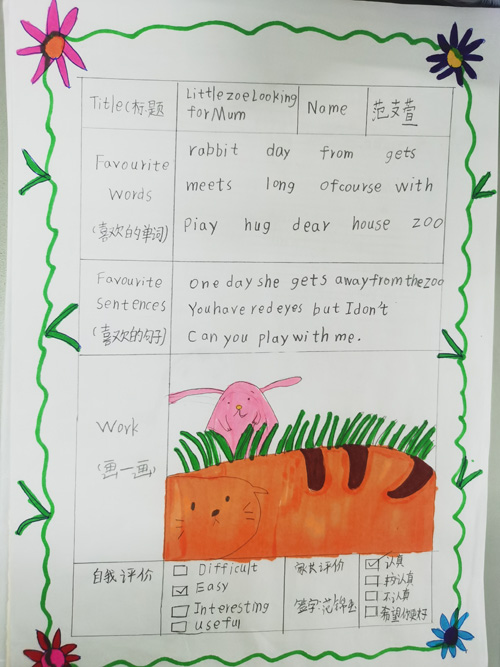 Title(标题
Little zoe Looking
for Mum
Name
范文萱
Favourite
words
(喜欢的单词)
rabbit day from gets
meets long ofcourse with
Piay hug dear house zoo
Favourite
Sentences
(喜欢的句子)
one day she gets away from the zoo
You have red eyes but I don't
Can you play with me.
Work
(画一画)
自我评价
Difficult
Easy
Interesting
useful
家长评价
签字:范锦
认真
较认真
不认真
希望你更好